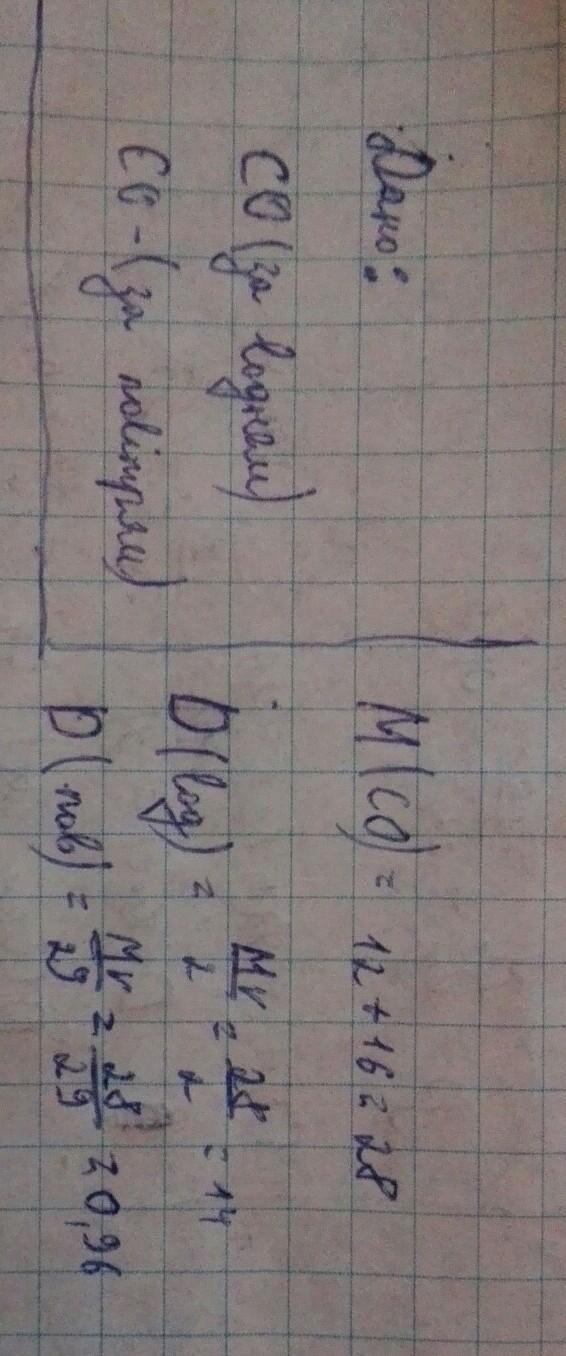 Дано:
CO (за воднем)
CO - (за повітрям)
M(CO) = 12 + 16 = 28
D(вод) = Mr/2 = 28/2 = 14
D(пов) = Mr/29 = 28/29 = 0,96